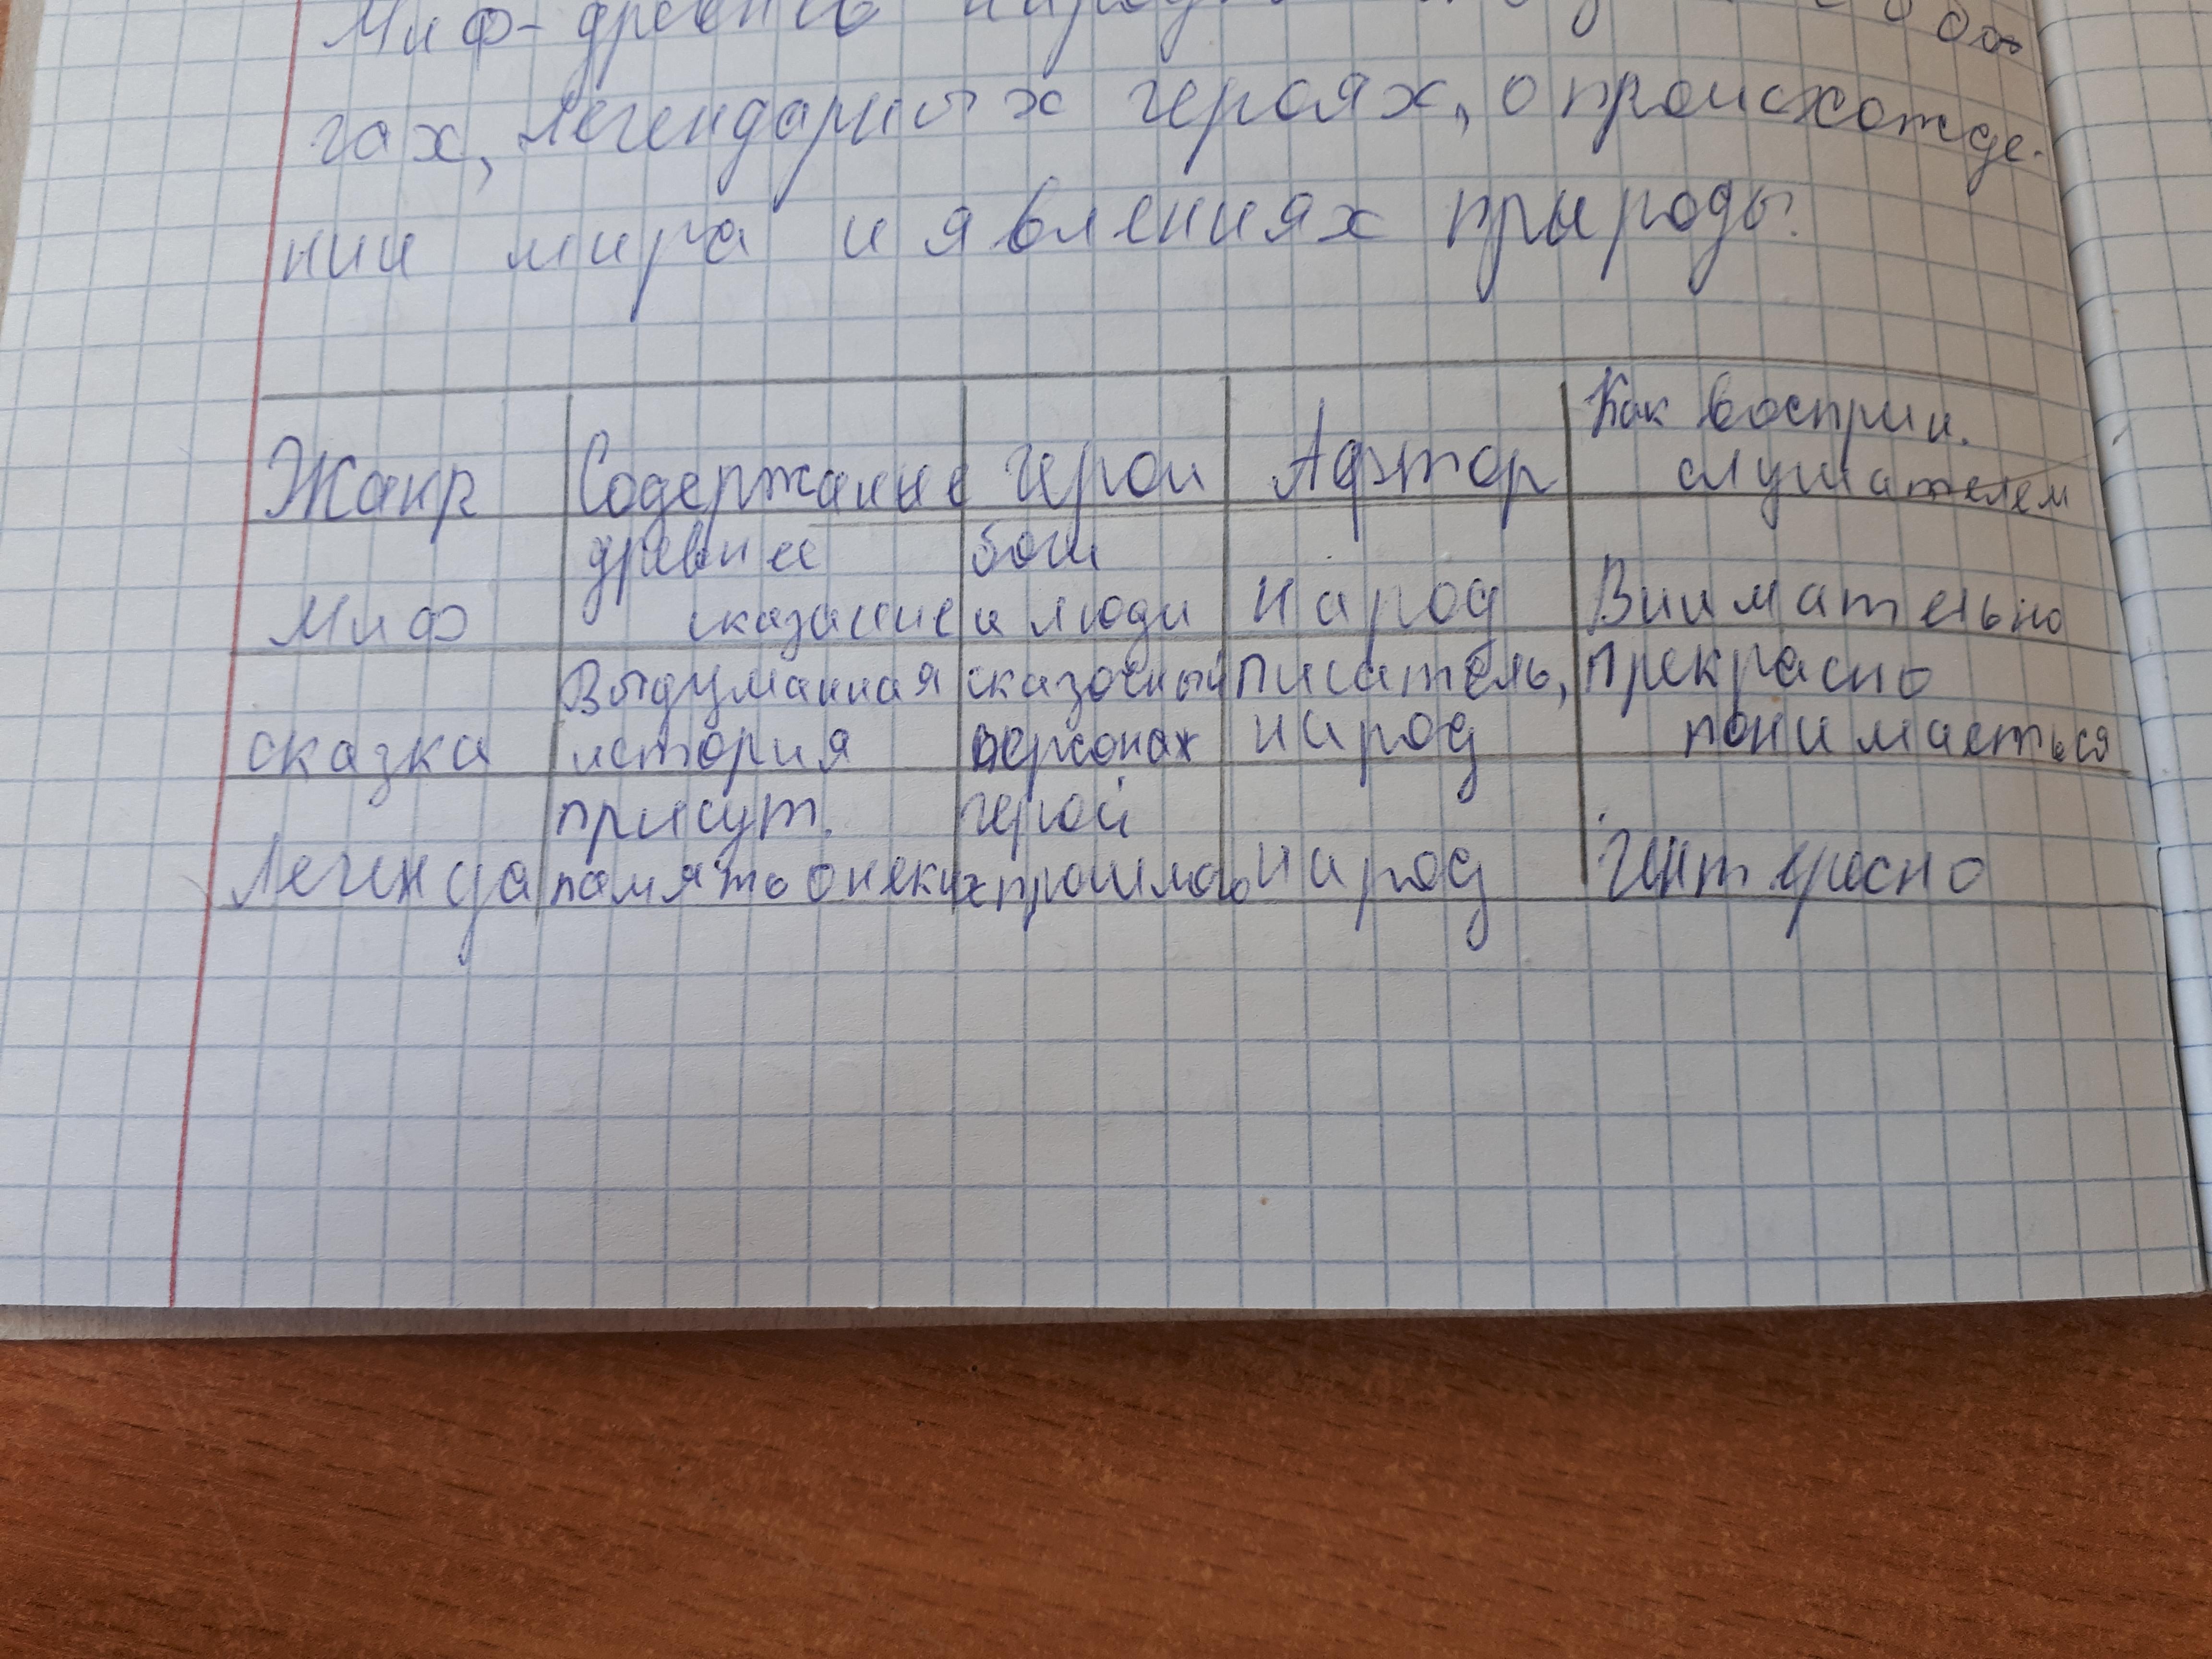 Миф-
гах, легендарных героях, о происхожде-
нии мира и явлениях природы.
Жанр Содержание герои Афтор Как восприн. слушателем
Миф древнее сказание боги и люди народ Внимательно
сказка Выдуманная история сказочный персонаж писатель, народ прекрасно понимаеться
Легенда присут. память о неких герой прошлого народ Интересно